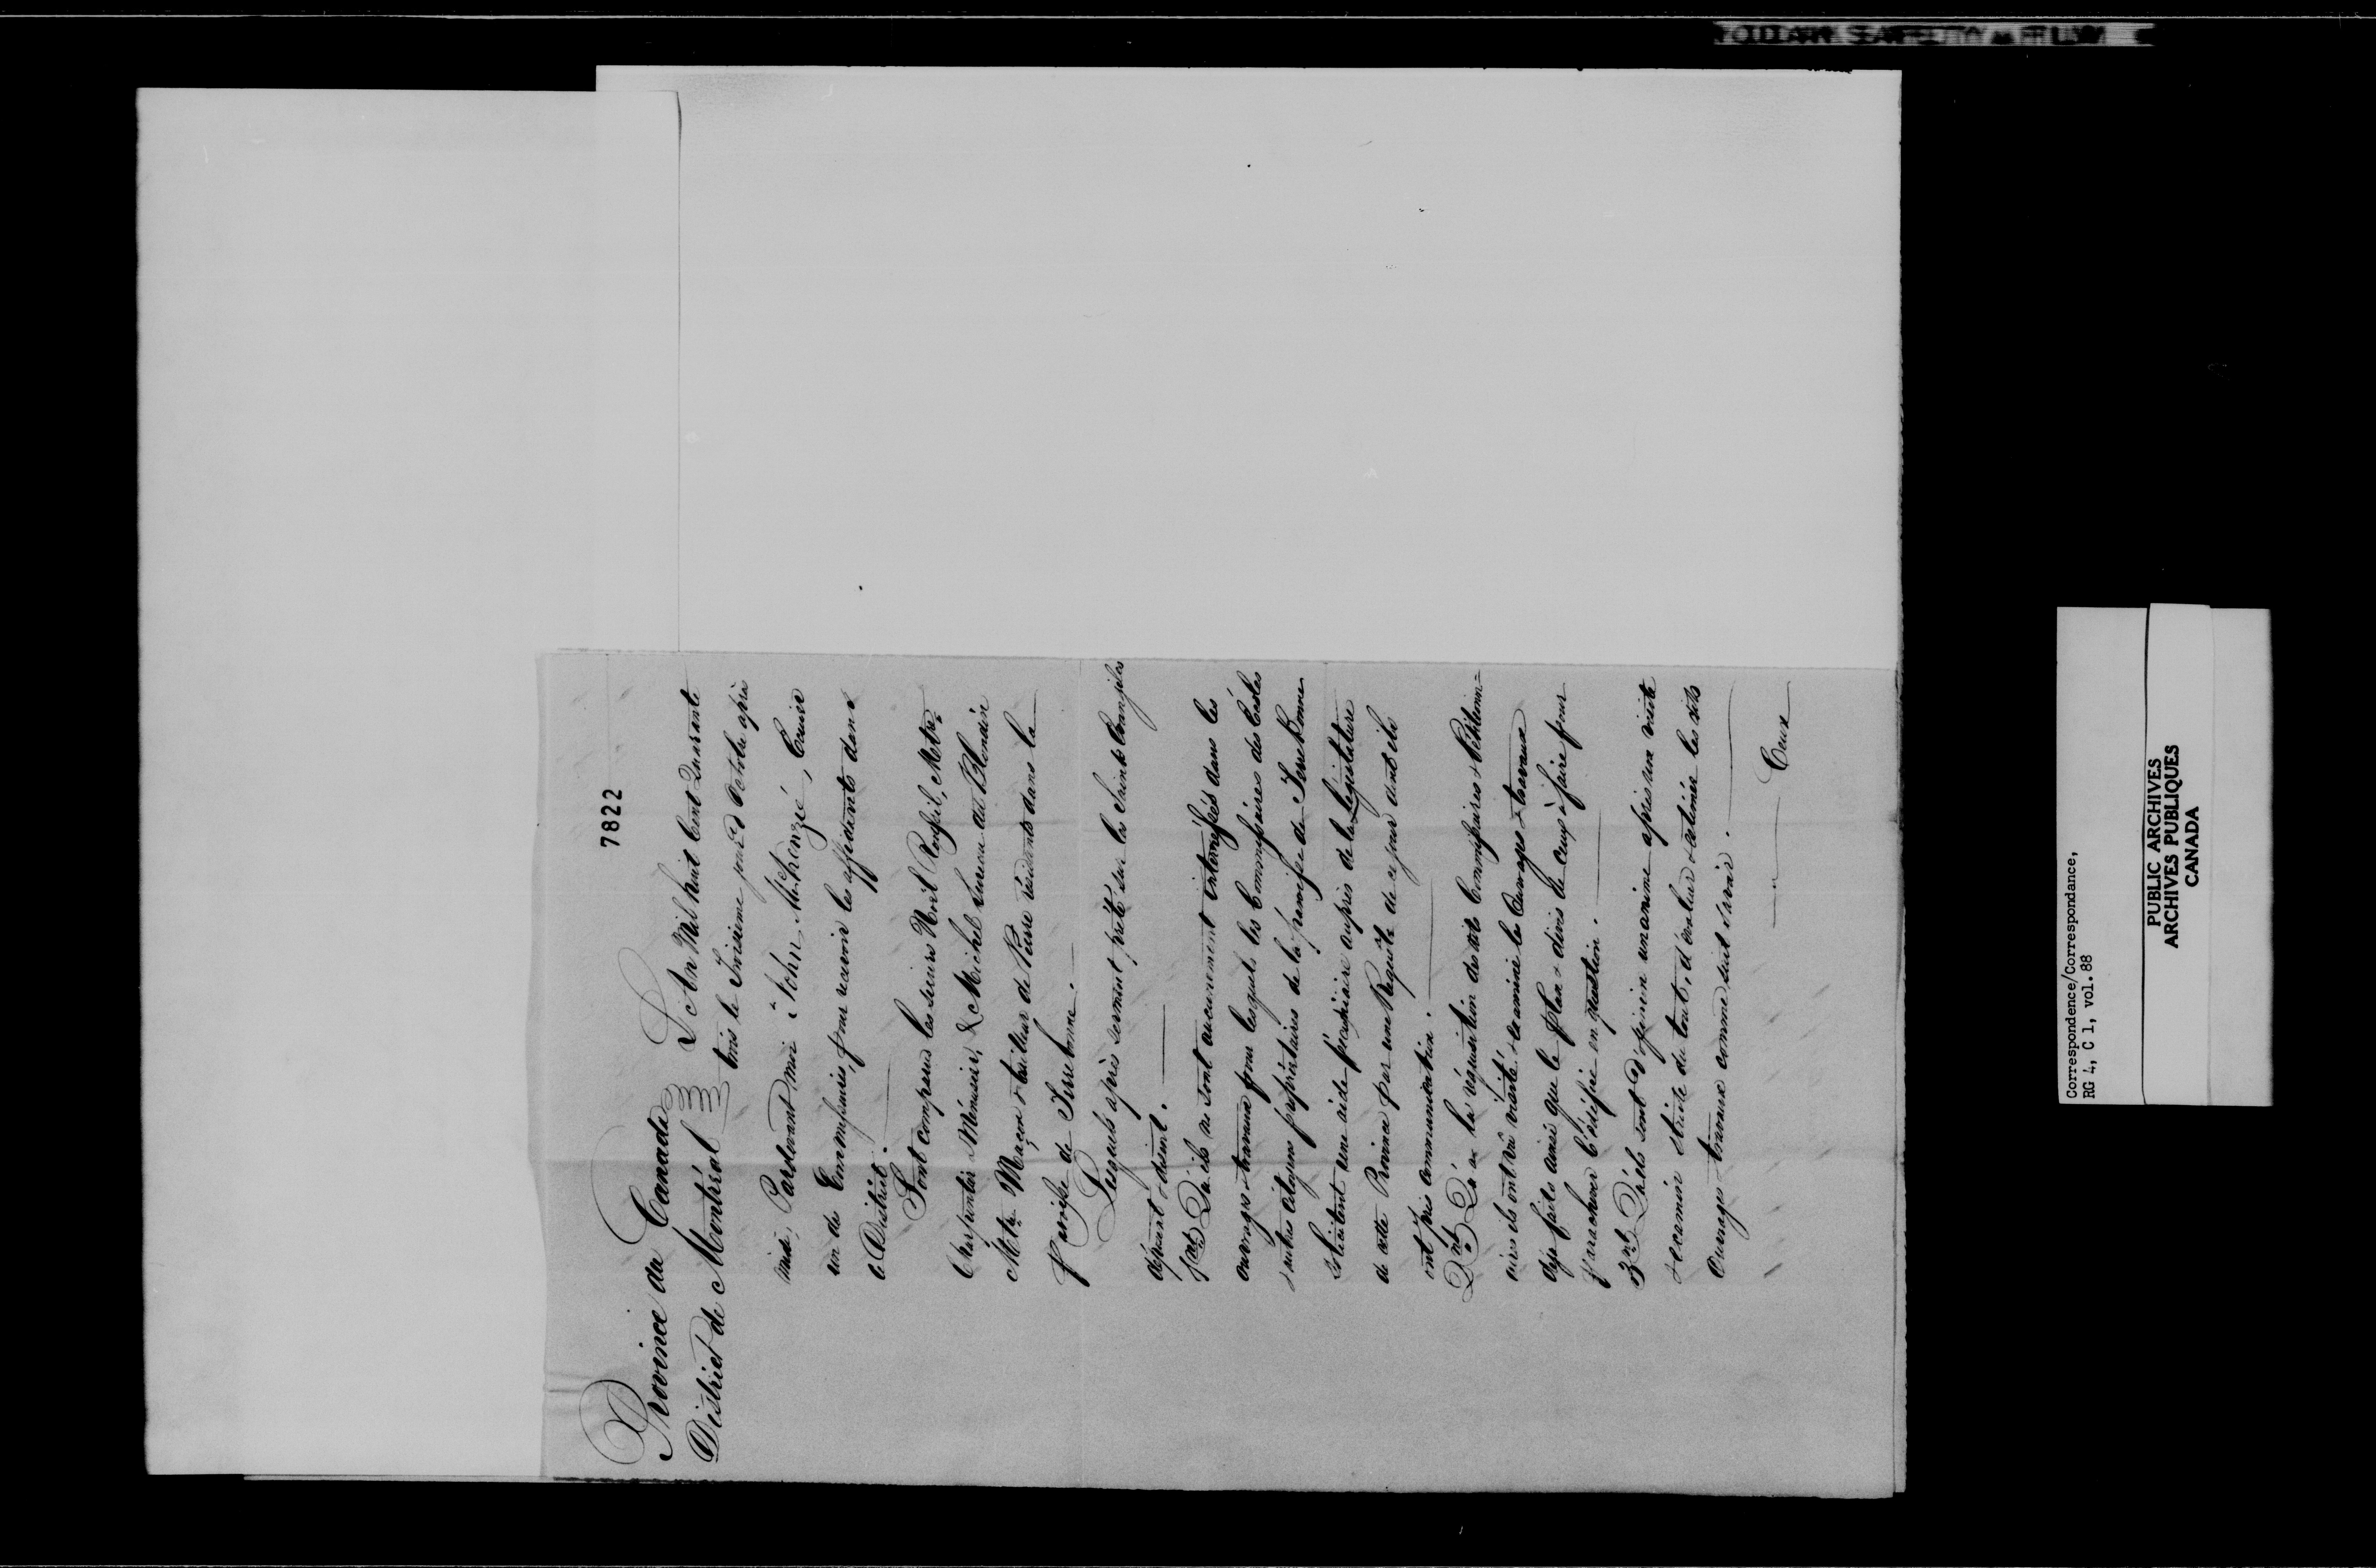 7822
Province du Canada
District de Montréal
L'An Mil huit Cent Quarante
trois le Troisieme jour d'Octobre après
midi, Pardevant moi John McKenzié, Ecuier
un de Commissaires pour recevoir les affidavits dans
ce District.
Sont comparus les sieurs Noël Rouphil, Metre
Charpentier & Menuisier, & Michel Lureau dit Blondin
Metre Maçon & tailleur de Pierre résidents dans la
Paroisse de Terrebonne.
Lesquels après serment prêté sur les Saints Evangiles
déposent & disent.
1ent Qu'ils ne sont aucunement interressés dans les
ouvrages & travaux pour lesquels les Commissaires des Ecoles
& autres citoyens propriétaires de la paroisse de Terrebonne
solicitent une aide pécuniaire auprès de la Législature
de cette Province par une Requête de ce jour dont ils
ont pris communication.
2ent Qu'a la réquisition des dits Commissaires & Pétition=
aires ils ont vû visité & examiné les Ouvrages & travaux
déja faits ainsi que le plan & devis de ceux à faire pour
parachever l'édifice en question.
3ent Qu'ils sont d'opinion unanime après une visite
& examen stricte du tout, d'évaluer & estimer les dits
Ouvrages & travaux comme suit savoir.
Ceux
Correspondence/Correspondance,
RG 4, C 1, vol. 88
PUBLIC ARCHIVES
ARCHIVES PUBLIQUES
CANADA